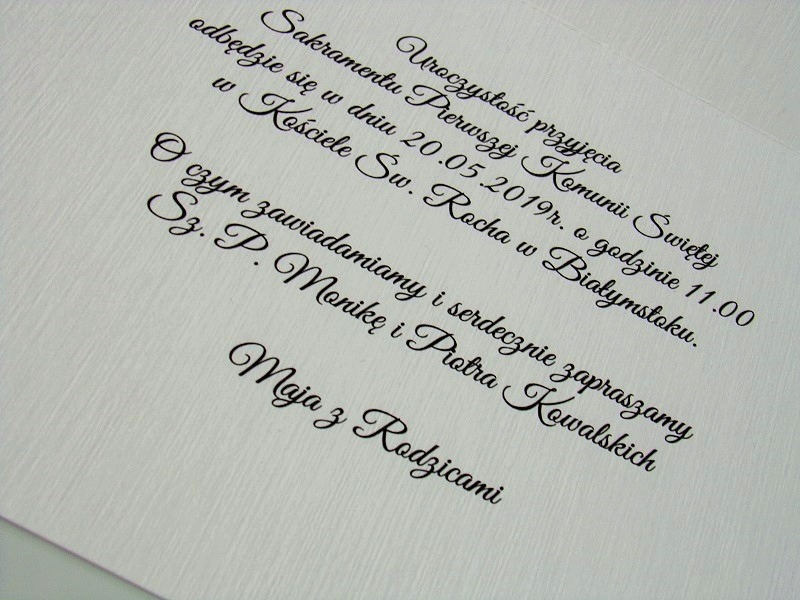 Uroczystość przyjęcia
Sakramentu Pierwszej Komunii Świętej
odbędzie się w dniu 20.05.2019r. o godzinie 11.00
w Kościele Św. Rocha w Białymstoku.
O czym zawiadamiamy i serdecznie zapraszamy
Sz. P. Monikę i Piotra Kowalskich
Maja z Rodzicami